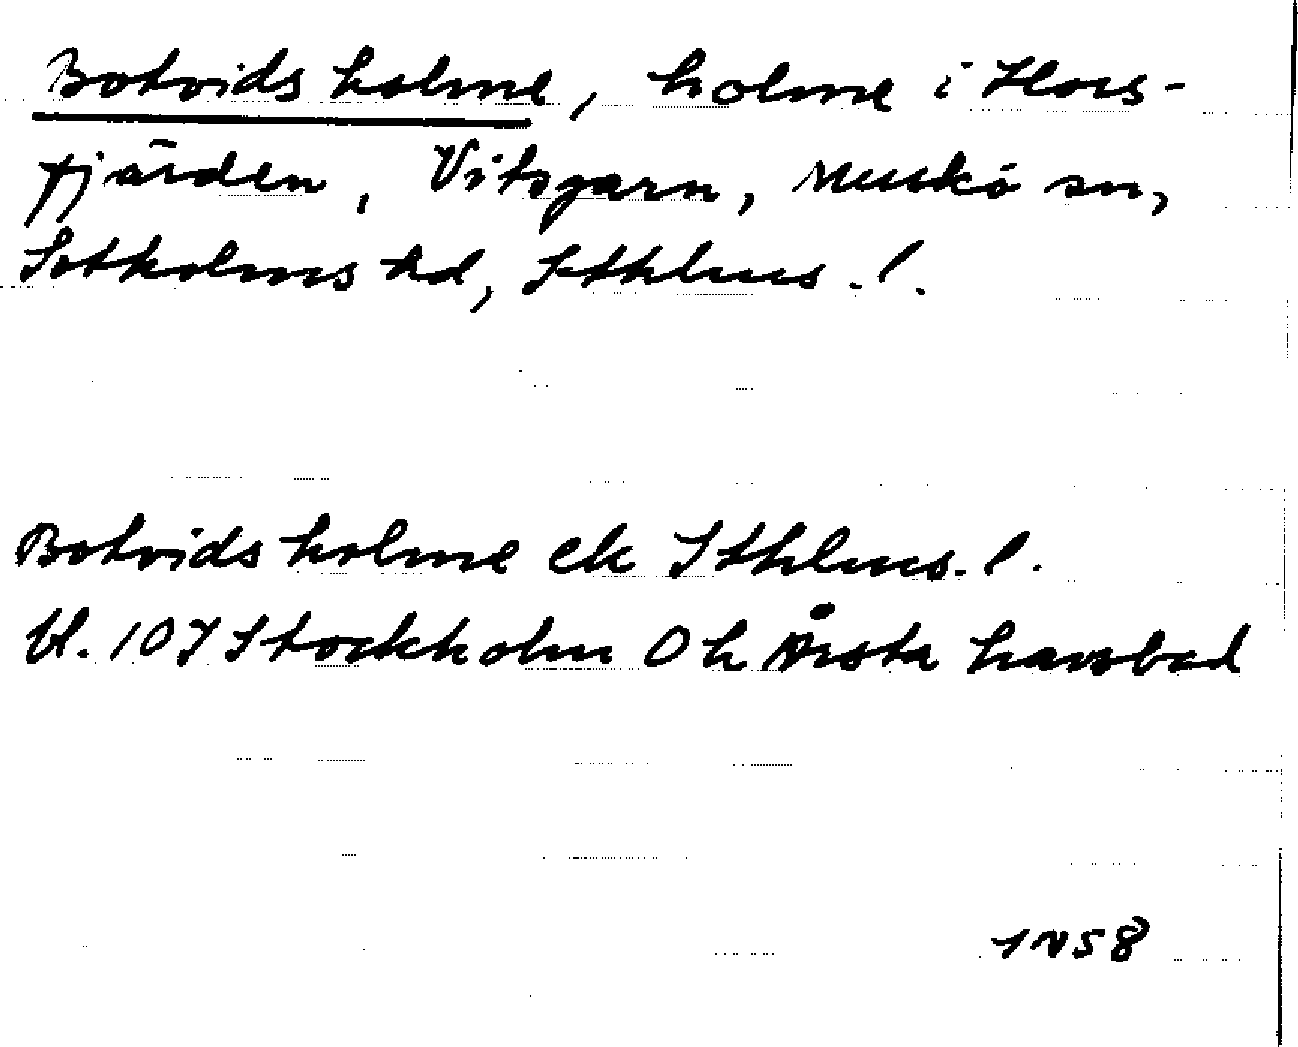 Botvidsholme, holme i Hors-
fjärden, Vitsgarn, Muskö sn,
Sotholms hd, Sthlms. l.
Botvidsholme ek Sthlms. l.
bl. 107 Stockholm O h Årsta havsbad
IN58